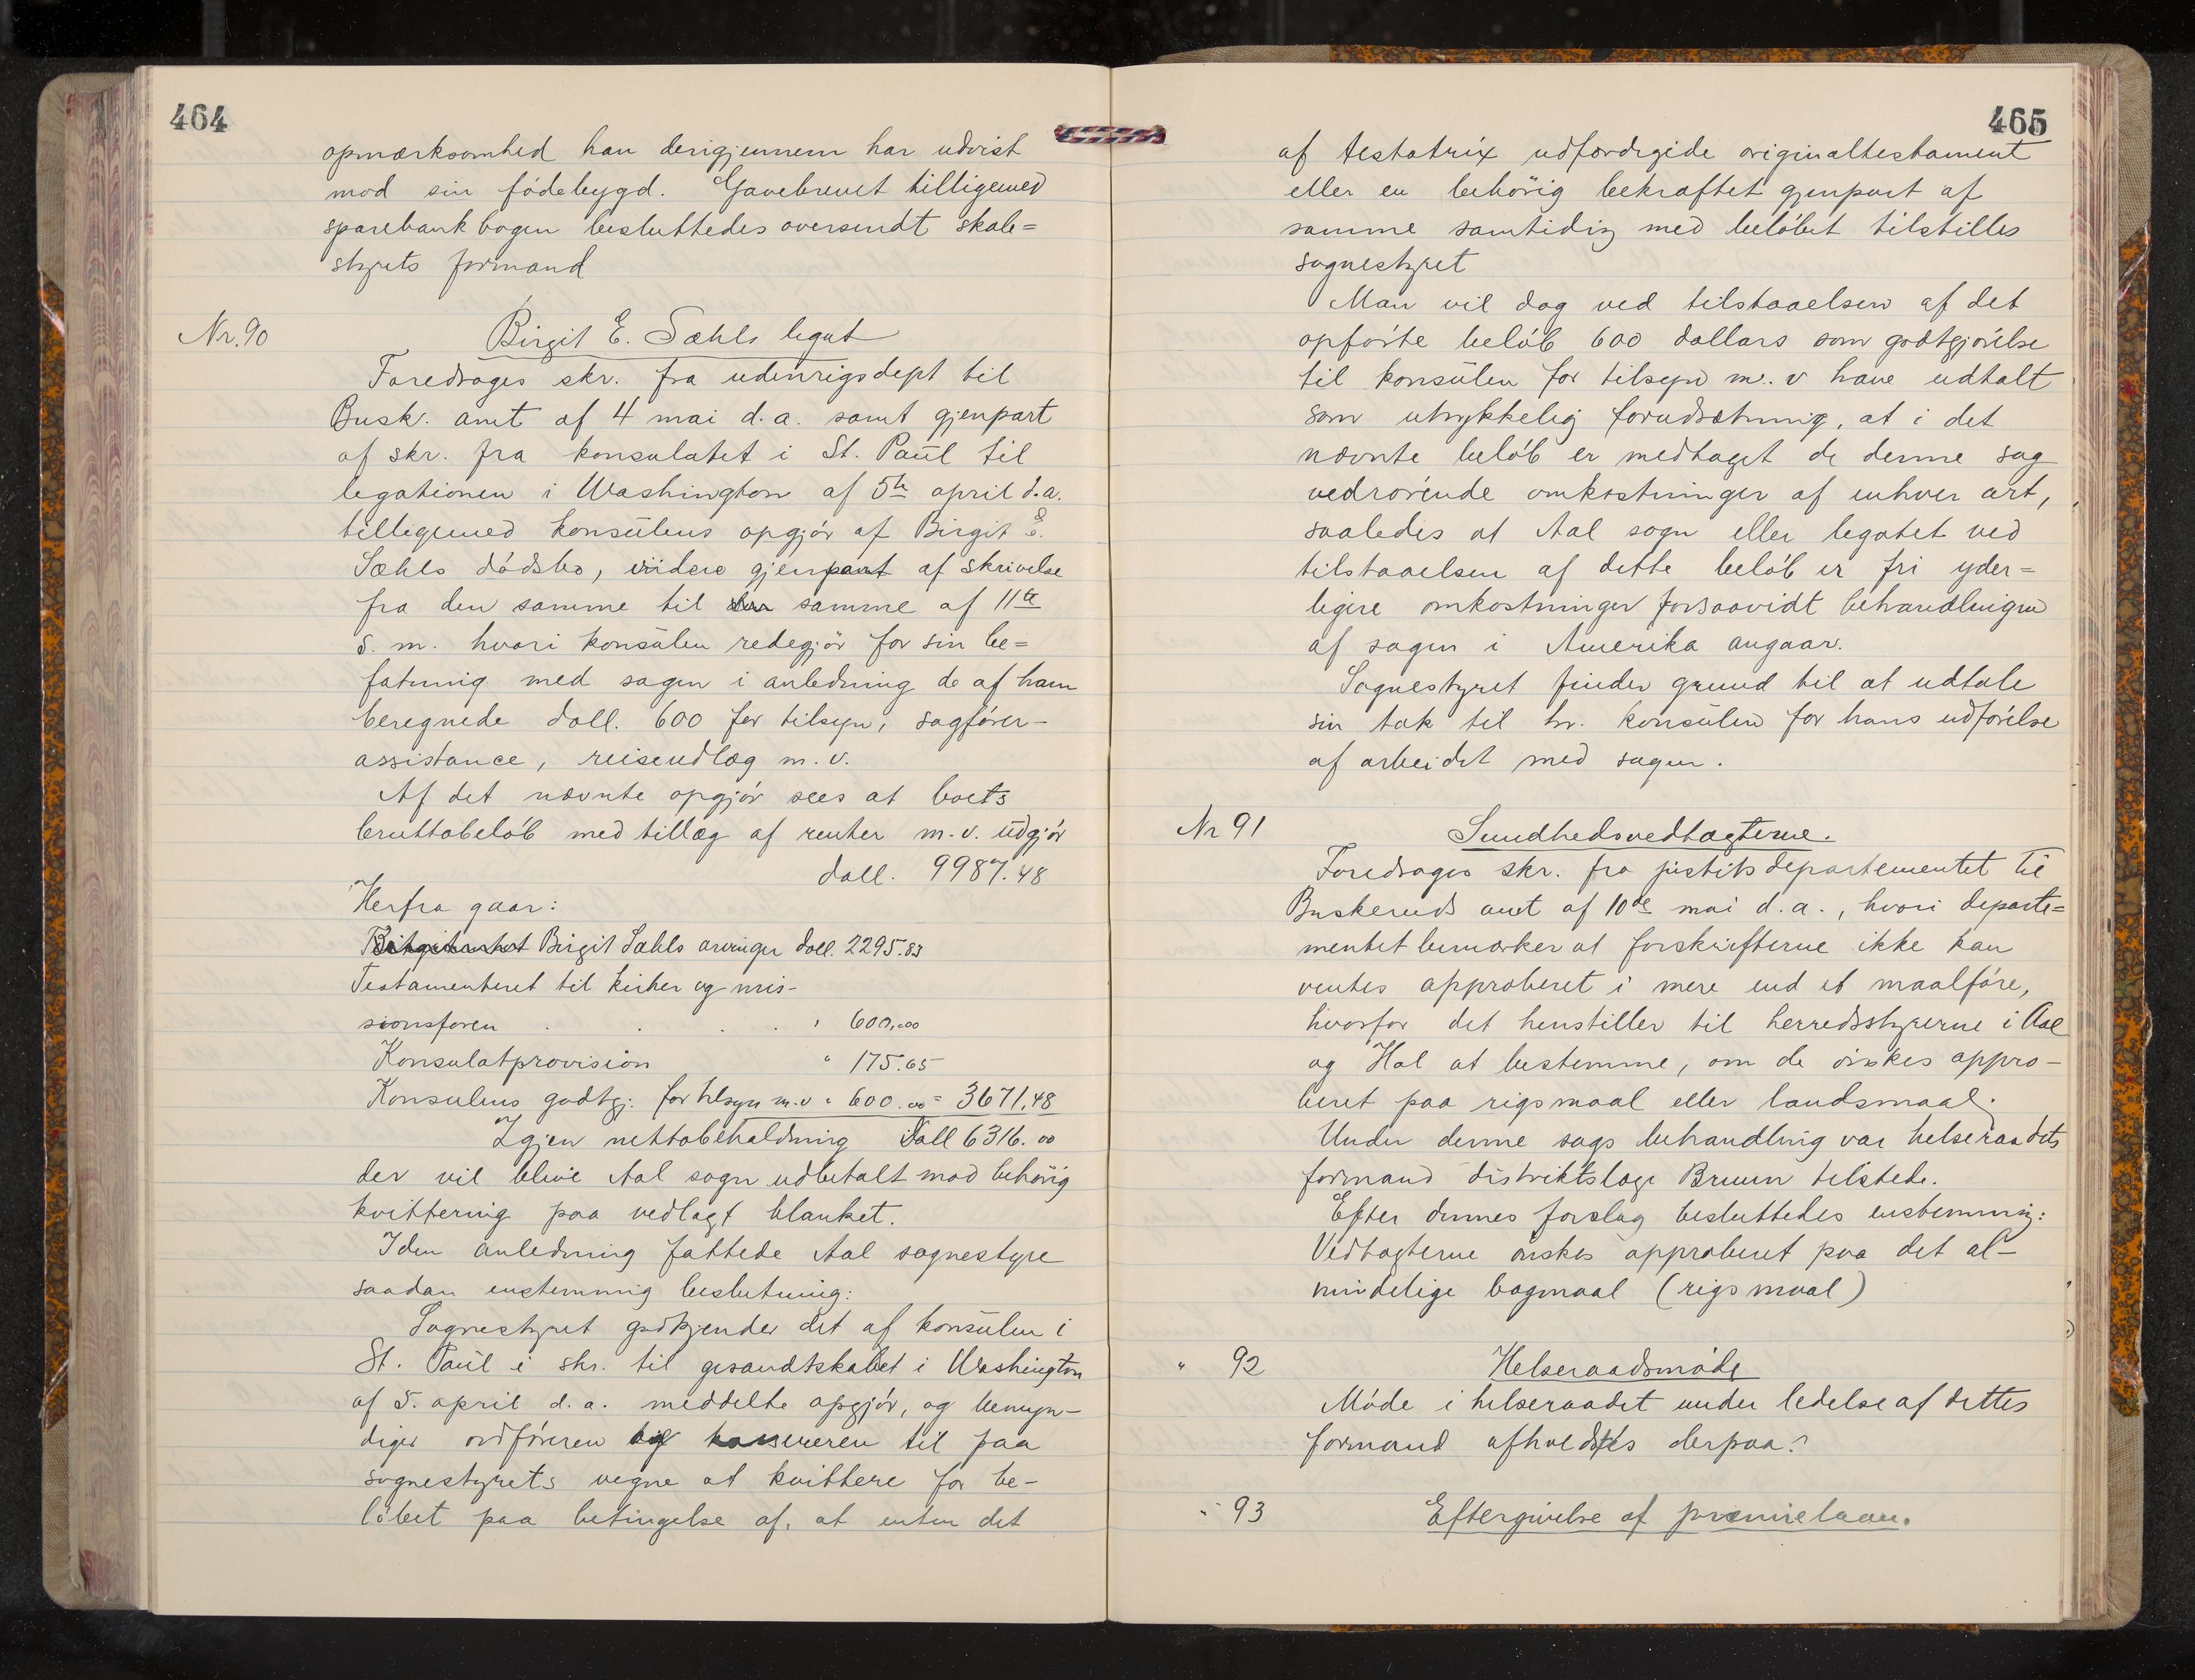 464
opmærksomhed han derigjennem har udvist
mod sin fødebygd. Gavebrevet tilligemed
sparebankbogen besluttedes oversendt skole=
styrets formand
Nr. 90
Birgit E. Sæhls legat
Foredroges skr. fra udenrigsdept til
Busk. amt af 4 mai d.a. samt gjenpart
af skr. fra konsulatet i St. Paul til
legationen i Washington af 5te april d.a.
tilligemed konsulens opgjør af Birgit E.
Sæhls dødsbo, videre gjenpart af skrivelse
fra den samme til den samme af 11te
s.m. hvori konsulen redegjør for sin be=
fatning med sagen i anledning de af ham
beregnede doll. 600 for tilsyn, sagfører-
assistance, reiseudlæg m.v.
Af det nævnte opgjør sees at boets
bruttobeløb med tillæg af renter m.v. udgjør
doll. 9987.48
Herfra gaar:
Birgit Sæhls arvinger doll. 2295.83
Testamenteret til kirker og mis-
sionsforen . . . . " 600,00
Konsulatprovision " 175.65
Konsulens godtgj. for tilsyn m.v " 600.00 = 3671,48
Igjen nettobeholdning Doll 6316.00
der vil blive Aal sogn udbetalt mod behørig
kvittering paa vedlagt blanket.
I den anledning fattede Aal sognestyre
saadan enstemmig beslutning:
Sognestyret godkjender det af konsulen i
St. Paul i skr. til gesandtskabet i Washington
af 5. april d.a. meddelte opgjør, og bemyn-
diger ordføreren og kassereren til paa
sognestyrets vegne at kvittere for be-
løbet paa betingelse af, at enten det
465
af testatrix udfærdigede originaltestament
eller en behørig bekræftet gjenpart af
samme samtidig med beløbet tilstilles
sognestyret
Man vil dog ved tilstaaelsen af det
opførte beløb 600 dollars som godtgjørelse
til konsulen for tilsyn m.v have udtalt
som utrykkelig forudsætning, at i det
nævnte beløb er medtaget de denne sag
vedrørende omkostninger af enhver art,
saaledes at Aal sogn eller legatet ved
tilstaaelsen af dette beløb er fri yder=
ligere omkostninger forsaavidt behandlingen
af sagen i Amerika angaar.
Sognestyret finder grund til at udtale
sin tak til hr. konsulen for hans udførelse
af arbeidet med sagen.
Nr 91
Sundhedsvedtægterne.
Foredroges skr. fra justitsdepartementet til
Buskeruds amt af 10de mai d.a., hvori departe=
mentet bemærker at forskrifterne ikke kan
ventes approberet i mere end et maalføre,
hvorfor det henstiller til herredsstyrerne i Aal
og Hol at bestemme, om de ønskes appro-
beret paa rigsmaal eller landsmaal.
Under denne sags behandling var helseraadets
formand distriktslæge Bruun tilstede.
Efter dennes forslag besluttedes enstemmig:
Vedtægterne ønskes approberet paa det al-
mindelige bogmaal (rigsmaal)
" 92
Helseraadsmøde
Møde i helseraadet under ledelse af dettes
formand afholdtes derpaa.
" 93
Eftergivelse af præmielaan.